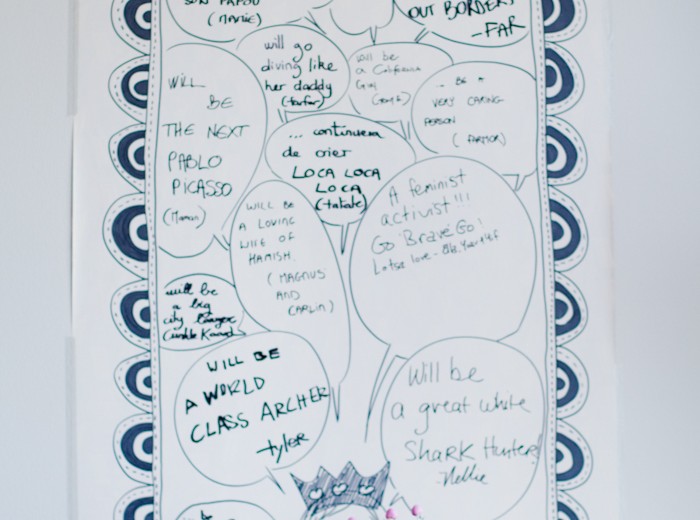 SON PAPOU
(MAMIE)
OUT BORDERS
-FAR
will go
diving like
her daddy
(farfar)
will be
a California
Girl
WILL
BE
THE NEXT
PABLO
PICASSO
(Maman)
... BE A
VERY CARING
PERSON
(FARMOR)
... continuera
de crier
LOCA LOCA
LOCA
A feminist
activist!!!
Go Brave Go!
Lotsa love -
WILL BE
A LOVING
WIFE OF
HAMISH.
(MAGNUS
AND
CARLIN)
will be
a big
city
(uncle
WILL BE
A WORLD
CLASS ARCHER
-tyler
Will be
a great white
Shark Hunter!
-Nellie
be